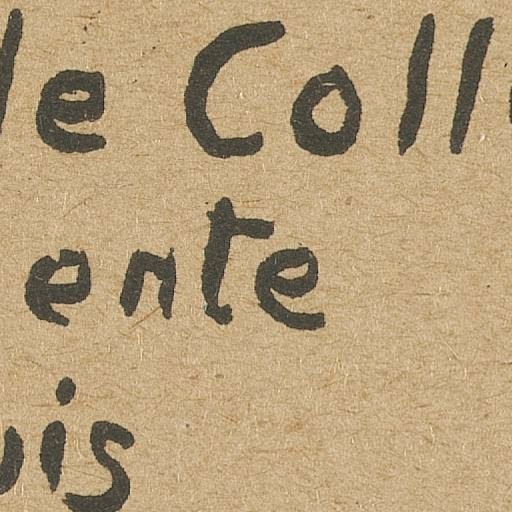 le Coll
ente
uis